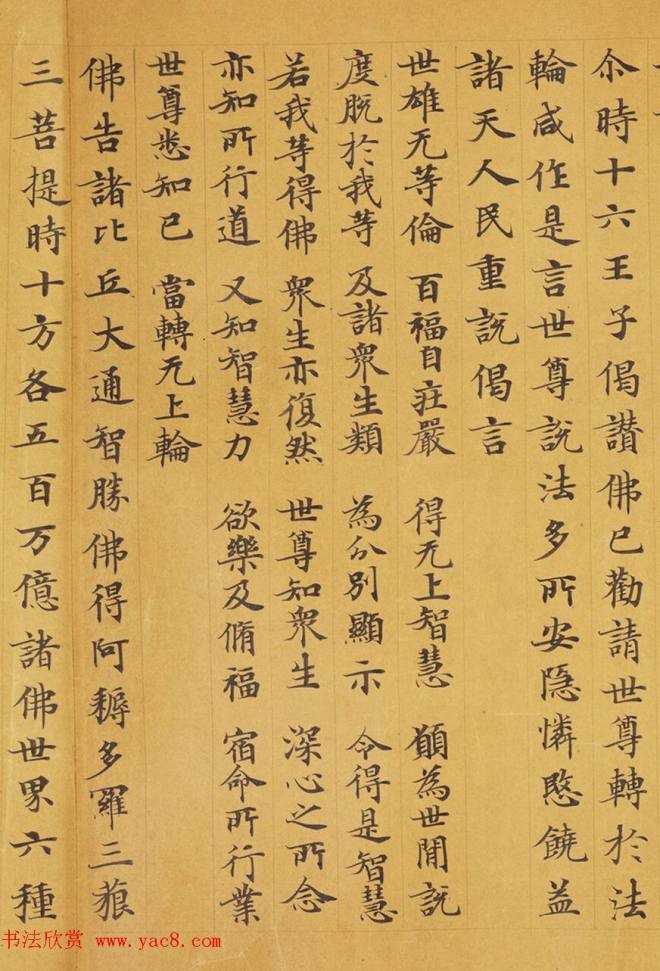 尒時十六王子偈讃佛已勸請世尊轉於法
輪咸作是言世尊說法多所安隠憐愍饒益
諸天人民重說偈言
世雄无等倫 百福自莊嚴 得无上智慧 願為世間說
度脫於我等 及諸衆生類 為分別顯示 令得是智慧
若我等得佛 衆生亦復然 世尊知衆生 深心之所念
亦知所行道 又知智慧力 欲樂及脩福 宿命所行業
世尊悉知已 當轉无上輪
佛告諸比丘大通智勝佛得阿耨多羅三藐
三菩提時十方各五百万億諸佛世界六種
书法欣赏 www.yac8.com